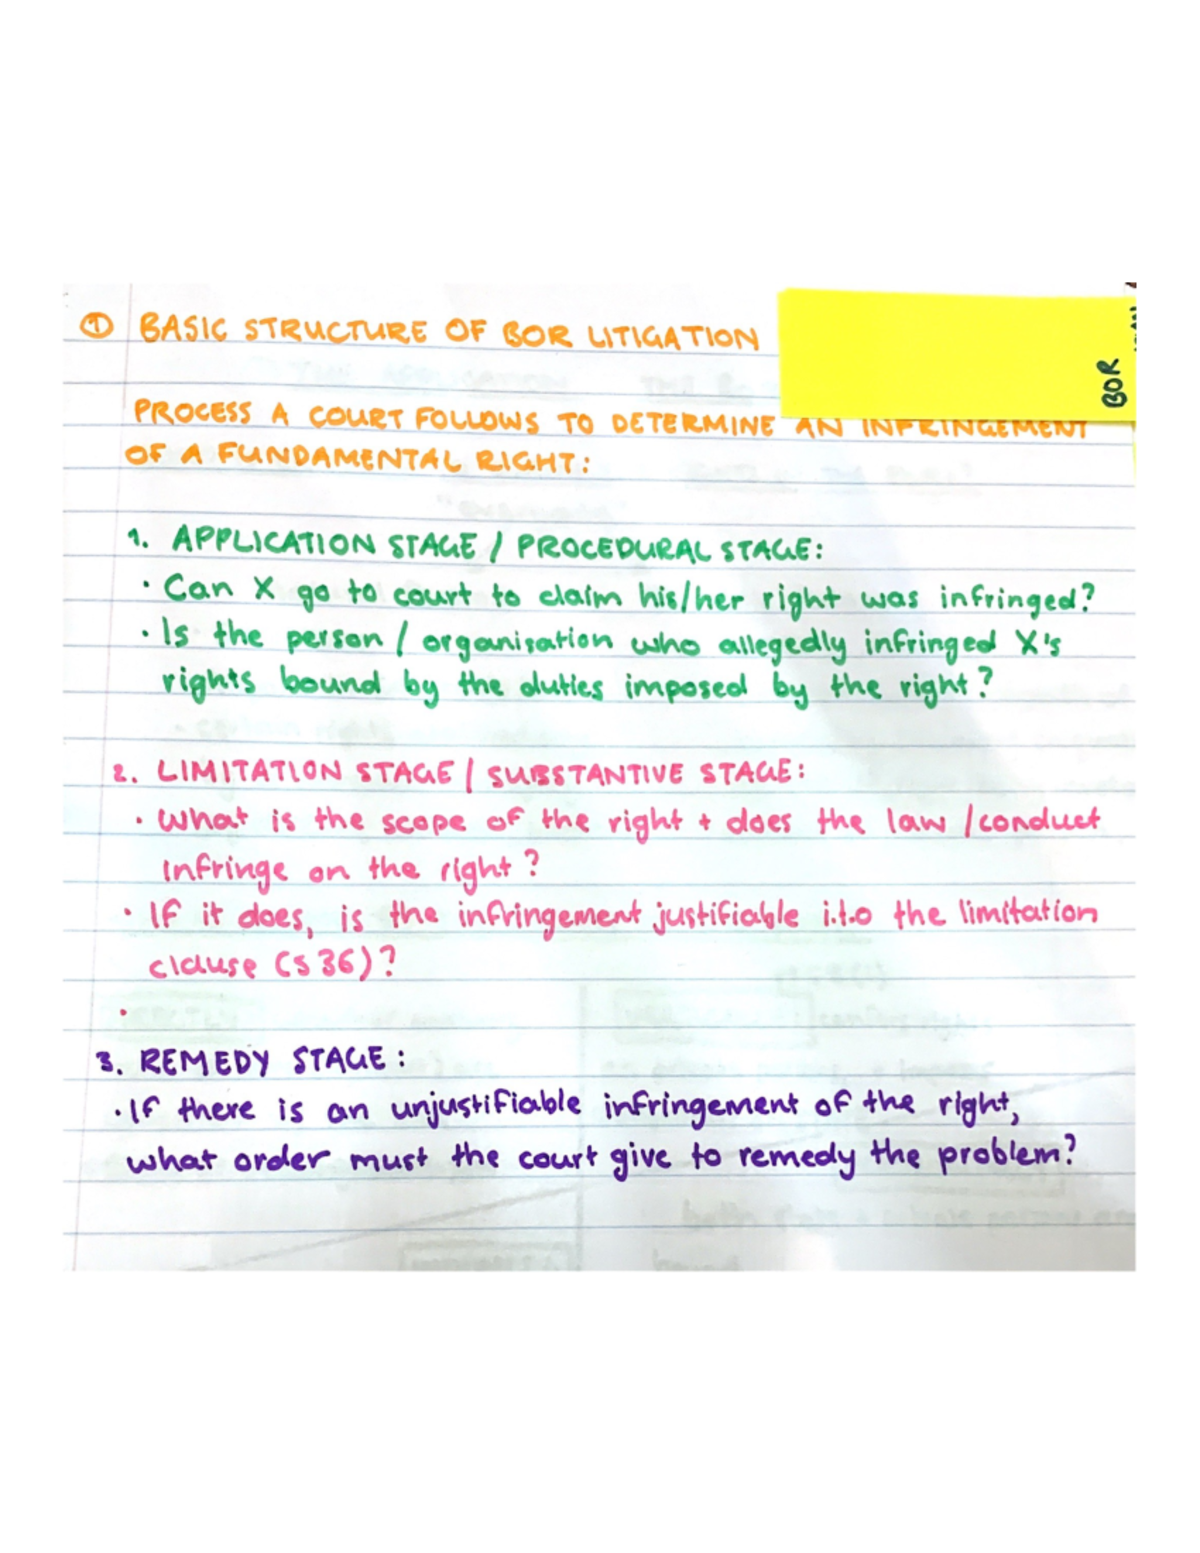 ① BASIC STRUCTURE OF BOR LITIGATION
BOR
PROCESS A COURT FOLLOWS TO DETERMINE AN INFRINGEMENT
OF A FUNDAMENTAL RIGHT:
1. APPLICATION STAGE / PROCEDURAL STAGE:
· Can X go to court to claim his/her right was infringed?
· Is the person / organisation who allegedly infringed X's
rights bound by the duties imposed by the right?
2. LIMITATION STAGE / SUBSTANTIVE STAGE:
· What is the scope of the right + does the law / conduct
infringe on the right?
· If it does, is the infringement justifiable i.t.o the limitation
clause (s 36)?
·
3. REMEDY STAGE:
· If there is an unjustifiable infringement of the right,
what order must the court give to remedy the problem?